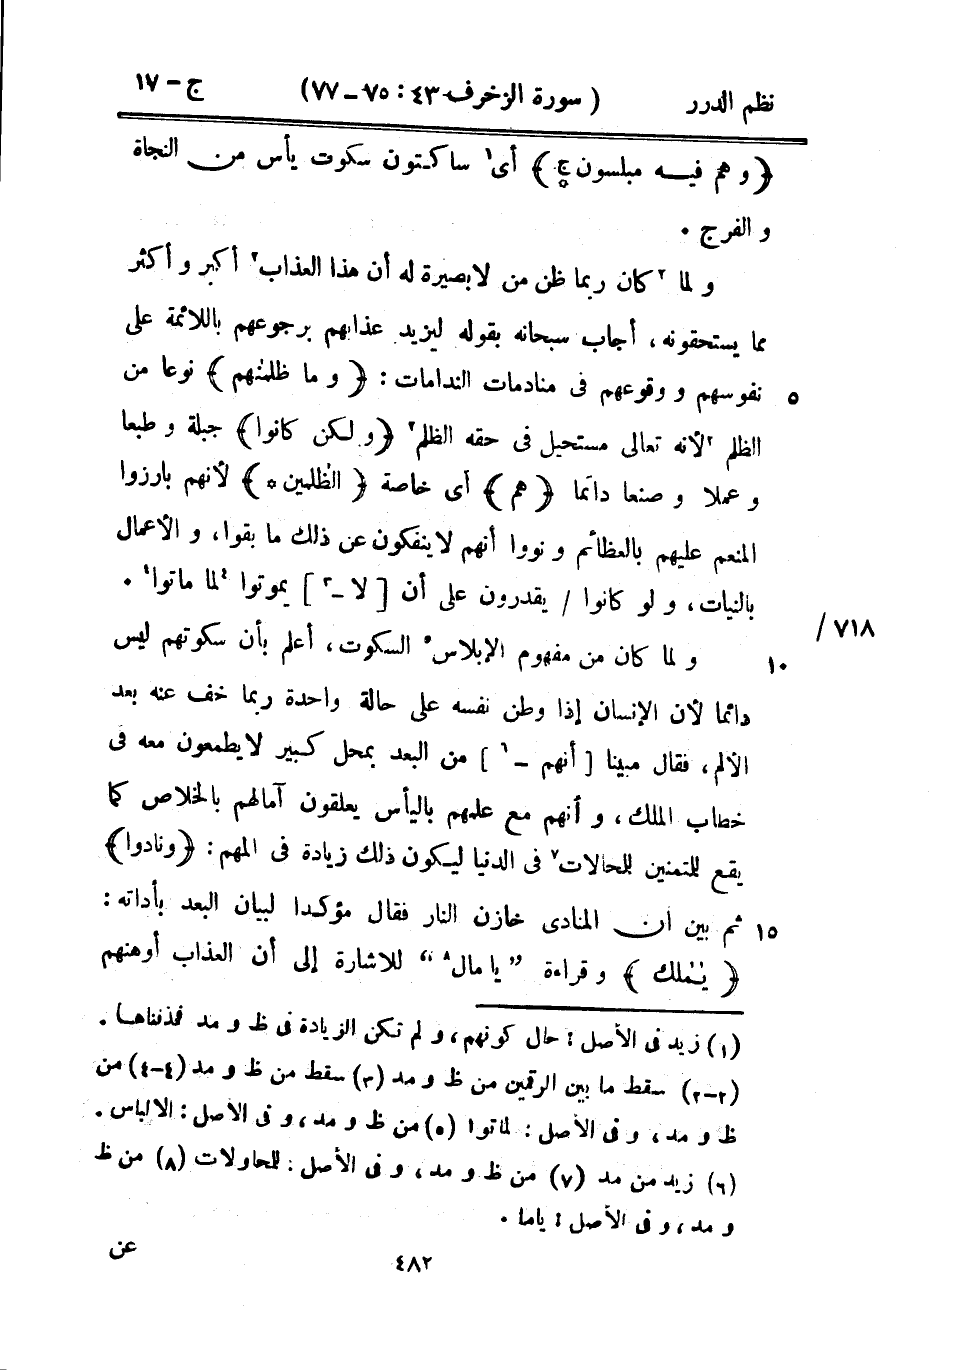 نظم الدرر ( سورة الزخرف ٤٣ : ٧٥ - ٧٧ ) ج - ١٧
﴿ و هم فيه مبلسون ج ٥ ﴾ أى١ ساكتون سكوت يأس من النجاة
و الفرج .
و لما ٢كان ربما ظن من لا بصيرة له أن هذا العذاب٢ أكبر و أكثر
مما يستحقونه ، أجاب سبحانه بقوله ليزيد عذابهم برجوعهم باللائمة على
٥ نفوسهم و وقوعهم فى منادمات الندامات : ﴿ و ما ظلمنٰهم ﴾ نوعا من
الظلم ٢لأنه تعالى مستحيل فى حقه الظلم٢ ﴿ و لكن كانوا ﴾ جبلة و طبعا
و عملا و صنعا دائما ﴿ هم ﴾ أى خاصة ﴿ الظٰلمين ٥ ﴾ لأنهم بارزوا
المنعم عليهم بالعظائم و نووا أنهم لا ينفكون عن ذلك ما بقوا ، و الأعمال
بالنيات ، و لو كانوا / يقدرون على أن [ لا -٣ ] يموتوا ٤لما ماتوا٤ .
/ ٧١٨
١٠ و لما كان من مفهوم الإبلاس٥ السكوت ، أعلم بأن سكوتهم ليس
دائما لأن الإنسان إذا وطن نفسه على حالة واحدة ربما خف عنه بعد
الألم ، فقال مبينا [ أنهم -٦ ] من البعد بمحل كبير لا يطمعون معه فى
خطاب الملك ، و أنهم مع علمهم باليأس يعلقون آمالهم بالخلاص كما
يقع للتمنين للحالات٧ فى الدنيا ليكون ذلك زيادة فى المهم : ﴿ ونادوا ﴾
١٥ ثم بين أن المنادى خازن النار فقال مؤكدا لبيان البعد بأداته :
﴿ يٰمٰلك ﴾ و قراءة ” يا مال٨ “ للاشارة إلى أن العذاب أوهنهم
(١) زيد فى الأصل : حال كونهم ، و لم تكن الزيادة فى ظ و مد فحذفناها .
(٢-٢) سقط ما بين الرقمين من ظ و مد (٣) سقط من ظ و مد (٤-٤) من
ظ و مد ، و فى الأصل : لماتوا (٥) من ظ و مد ، و فى الأصل : الالباس .
(٦) زيد من مد (٧) من ظ و مد ، و فى الأصل : للحاولات (٨) من ظ
و مد ، و فى الأصل : ياما .
عن
٤٨٢